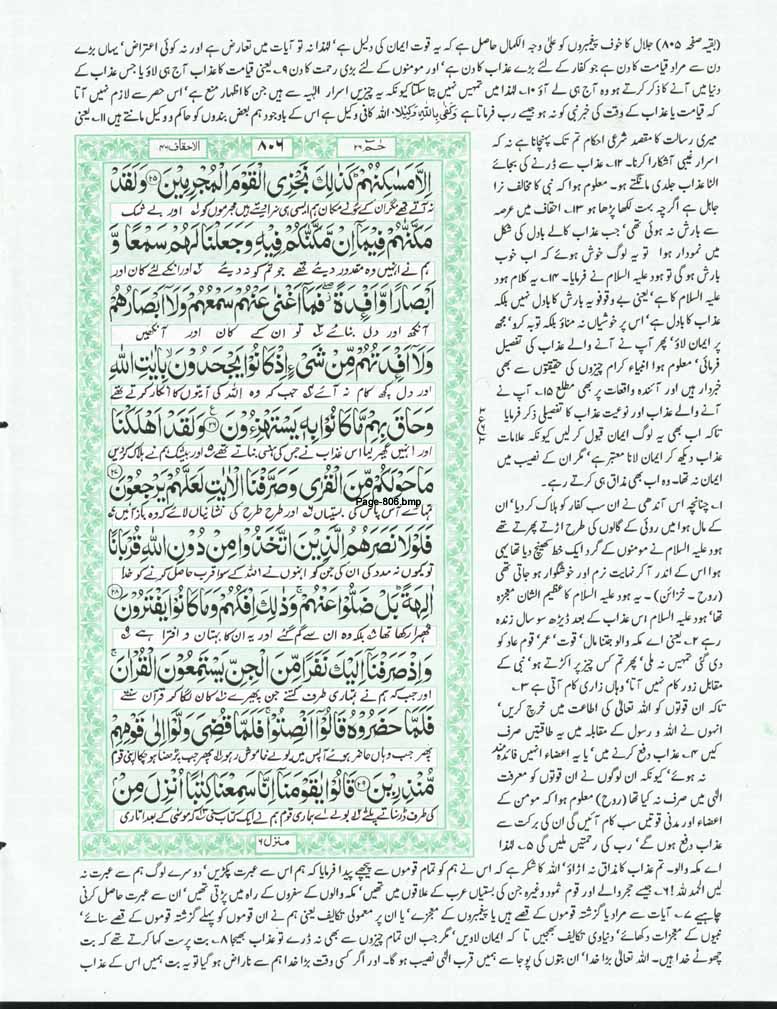 (بقیہ صفحہ ۸۰۵) جلال کا خوف پیغمبروں کو علیٰ وجہ الکمال حاصل ہے کہ یہ قوت ایمان کی دلیل ہے' لہٰذا نہ تو آیات میں تعارض ہے اور نہ کوئی اعتراض' یہاں بڑے
دن سے مراد قیامت کا دن ہے جو کفار کے لئے بڑے عذاب کا دن ہے' اور مومنوں کے لئے بڑی رحمت کا دن ۹۔ یعنی قیامت کا عذاب آج ہی لاؤ یا جس عذاب کے
دنیا میں آنے کا ذکر کرتے ہو وہ آج ہی لے آؤ ۱۰۔ لہٰذا میں تمہیں نہیں بتا سکتا کیونکہ یہ چیزیں اسرار الٰہیہ سے ہیں جن کا اظہار منع ہے' اس حصر سے لازم نہیں آتا
کہ قیامت یا عذاب کے وقت کی خبر نبی کو نہ ہو جیسے رب فرماتا ہے وَكَفٰى بِاللّٰهِ وَكِيْلًا۔ اللہ کافی وکیل ہے اس کے باوجود ہم بعض بندوں کو حاکم و وکیل مانتے ہیں ۱۱۔ یعنی
میری رسالت کا مقصد شرعی احکام تم تک پہنچانا ہے نہ کہ
اسرار غیبی آشکارا کرنا۔ ۱۲۔ عذاب سے ڈرنے کی بجائے
الٹا عذاب جلدی مانگتے ہو۔ معلوم ہوا کہ نبی کا مخالف نرا
جاہل ہے اگرچہ بہت لکھا پڑھا ہو ۱۳۔ احقاف میں عرصہ
سے بارش نہ ہوئی تھی' جب عذاب کالے بادل کی شکل
میں نمودار ہوا تو یہ لوگ خوش ہوئے کہ اب خوب
بارش ہو گی تو ہود علیہ السلام نے فرمایا۔ ۱۴۔ یہ کلام ہود
علیہ السلام کا ہے' یعنی بے وقوفو یہ بارش کا بادل نہیں بلکہ
عذاب کا بادل ہے' اس پر خوشیاں نہ مناؤ بلکہ توبہ کرو' مجھ
پر ایمان لاؤ' پھر آپ نے آنے والے عذاب کی تفصیل
فرمائی' معلوم ہوا انبیاء کرام چیزوں کی حقیقتوں سے بھی
خبردار ہیں اور آئندہ واقعات پر بھی مطلع ۱۵۔ آپ نے
آنے والے عذاب اور نوعیت عذاب کا تفصیلی ذکر فرمایا
تاکہ اب بھی یہ لوگ ایمان قبول کر لیں کیونکہ علامات
عذاب دیکھ کر ایمان لانا معتبر ہے' مگر ان کے نصیب میں
ایمان نہ تھا۔ وہ اب بھی مذاق ہی کرتے رہے۔
۱۔ چنانچہ اس آندھی نے ان سب کفار کو ہلاک کر دیا' ان
کے مال ہوا میں روئی کے گالوں کی طرح اڑتے پھرتے تھے
ہود علیہ السلام نے مومنوں کے گرد ایک خط کھینچ دیا تھا یہی
ہوا اس کے اندر آ کر نہایت نرم اور خوشگوار ہو جاتی تھی
(روح - خزائن)۔ یہ ہود علیہ السلام کا عظیم الشان معجزہ
تھا' ہود علیہ السلام اس عذاب کے بعد ڈیڑھ سو سال زندہ
رہے ۲۔ یعنی اے مکہ والو جتنا مال' قوت' عمر' قوم عاد کو
دی گئی تمہیں نہ ملی' پھر تم کس چیز پر اکڑتے ہو' نبی کے
مقابل زور کام نہیں آتا' وہاں زاری کام آتی ہے ۳۔
تاکہ ان قوتوں کو اللہ تعالیٰ کی اطاعت میں خرچ کریں'
انہوں نے اللہ و رسول کے مقابلہ میں یہ طاقتیں صرف
کیں ۴۔ عذاب دفع کرنے میں' یا یہ اعضاء انہیں فائدہ مند
نہ ہوئے' کیونکہ ان لوگوں نے ان قوتوں کو معرفت
الٰہی میں صرف نہ کیا تھا (روح) معلوم ہوا کہ مومن کے
اعضاء اور مدنی قوتیں سب کام آئیں گی ان کی برکت سے
عذاب دفع ہوں گے' رب کی رحمتیں ملیں گی ۵۔ لہٰذا
الاحقاف ۴۶
۸۰۶
حٰمٓ ۲۶
اِلَّا مَسٰكِنُهُمْ ؕ كَذٰلِكَ نَجْزِی الْقَوْمَ الْمُجْرِمِیْنَ ۟۲۵ وَ لَقَدْ
نہ آتے تھے مگر ان کے سونے مکان ہم ایسی ہی سزا دیتے ہیں مجرموں کو اور بے شک
مَكَّنّٰهُمْ فِیْمَاۤ اِنْ مَّكَّنّٰكُمْ فِیْهِ وَ جَعَلْنَا لَهُمْ سَمْعًا وَّ
ہم نے انہیں وہ مقدور دیئے تھے جو تم کو نہ دیئے اور انکے لئے کان اور
اَبْصَارًا وَّ اَفْـِٕدَةً ۖ فَمَاۤ اَغْنٰی عَنْهُمْ سَمْعُهُمْ وَ لَاۤ اَبْصَارُهُمْ
آنکھ اور دل بنائے تو ان کے کان اور آنکھیں
وَ لَاۤ اَفْـِٕدَتُهُمْ مِّنْ شَیْءٍ اِذْ كَانُوْا یَجْحَدُوْنَ بِاٰیٰتِ اللّٰهِ
اور دل کچھ کام نہ آئے جب کہ وہ اللہ کی آیتوں کا انکار کرتے تھے
وَ حَاقَ بِهِمْ مَّا كَانُوْا بِهٖ یَسْتَهْزِءُوْنَ ۟۲۶ وَ لَقَدْ اَهْلَكْنَا
اور انہیں گھیر لیا اس عذاب نے جس کی ہنسی بناتے تھے اور بیشک ہم نے ہلاک کر دیں
مَا حَوْلَكُمْ مِّنَ الْقُرٰی وَ صَرَّفْنَا الْاٰیٰتِ لَعَلَّهُمْ یَرْجِعُوْنَ ۟۲۷
تمہارے آس پاس کی بستیاں اور طرح طرح کی نشانیاں لائے کہ وہ باز آئیں
Page-806.bmp
فَلَوْ لَا نَصَرَهُمُ الَّذِیْنَ اتَّخَذُوْا مِنْ دُوْنِ اللّٰهِ قُرْبَانًا
تو کیوں نہ مدد کی ان کی جن کو انہوں نے اللہ کے سوا قرب حاصل کرنے کو خدا
اٰلِهَةً ؕ بَلْ ضَلُّوْا عَنْهُمْ ۚ وَ ذٰلِكَ اِفْكُهُمْ وَ مَا كَانُوْا یَفْتَرُوْنَ ۟۲۸
ٹھہرا رکھا تھا بلکہ وہ ان سے گم گئے اور یہ ان کا بہتان و افترا ہے
وَ اِذْ صَرَفْنَاۤ اِلَیْكَ نَفَرًا مِّنَ الْجِنِّ یَسْتَمِعُوْنَ الْقُرْاٰنَ ۚ
اور جب کہ ہم نے تمہاری طرف کتنے جن پھیرے کان لگا کر قرآن سنتے
فَلَمَّا حَضَرُوْهُ قَالُوْۤا اَنْصِتُوْا ۚ فَلَمَّا قُضِیَ وَلَّوْا اِلٰی قَوْمِهِمْ
پھر جب وہاں حاضر ہوئے آپس میں بولے خاموش رہو پھر جب پڑھنا ہو چکا اپنی قوم
مُّنْذِرِیْنَ ۟۲۹ قَالُوْا یٰقَوْمَنَاۤ اِنَّا سَمِعْنَا كِتٰبًا اُنْزِلَ مِنْ
کی طرف ڈر سناتے پلٹے بولے اے ہماری قوم ہم نے ایک کتاب سنی کہ موسیٰ کے بعد اتاری
منزل ۶
اے مکہ والو۔ تم عذاب کا مذاق نہ اڑاؤ' اللہ کا شکر ہے کہ اس نے ہم کو تمام قوموں سے پیچھے پیدا فرمایا کہ ہم اس سے عبرت پکڑیں' دوسرے لوگ ہم سے عبرت نہ
لیں الحمد للہ! ۶۔ جیسے حجر والے اور قوم ثمود وغیرہ جن کی بستیاں عرب کے علاقوں میں تھیں' مکہ والوں کے سفروں کے راہ میں پڑتی تھیں' ان سے عبرت حاصل کرنی
چاہیے ۷۔ آیات سے مراد یا گزشتہ قوموں کے قصے ہیں یا پیغمبروں کے معجزے' یا ان پر معمولی تکالیف یعنی ہم نے ان قوموں کو پہلے گزشتہ قوموں کے قصے سنائے'
نبیوں کے معجزات دکھائے' دنیاوی تکالیف بھیجیں تا کہ ایمان لاویں' مگر جب ان تمام چیزوں سے بھی نہ ڈرے تو عذاب بھیجا ۸۔ بت پرست کہا کرتے تھے کہ بت
چھوٹے خدا ہیں۔ اللہ تعالیٰ بڑا خدا' ان بتوں کی پوجا سے ہمیں قرب الٰہی نصیب ہو گا۔ اور اگر کسی وقت بڑا خدا ہم سے ناراض ہو گیا تو یہ بت ہمیں اس کے عذاب